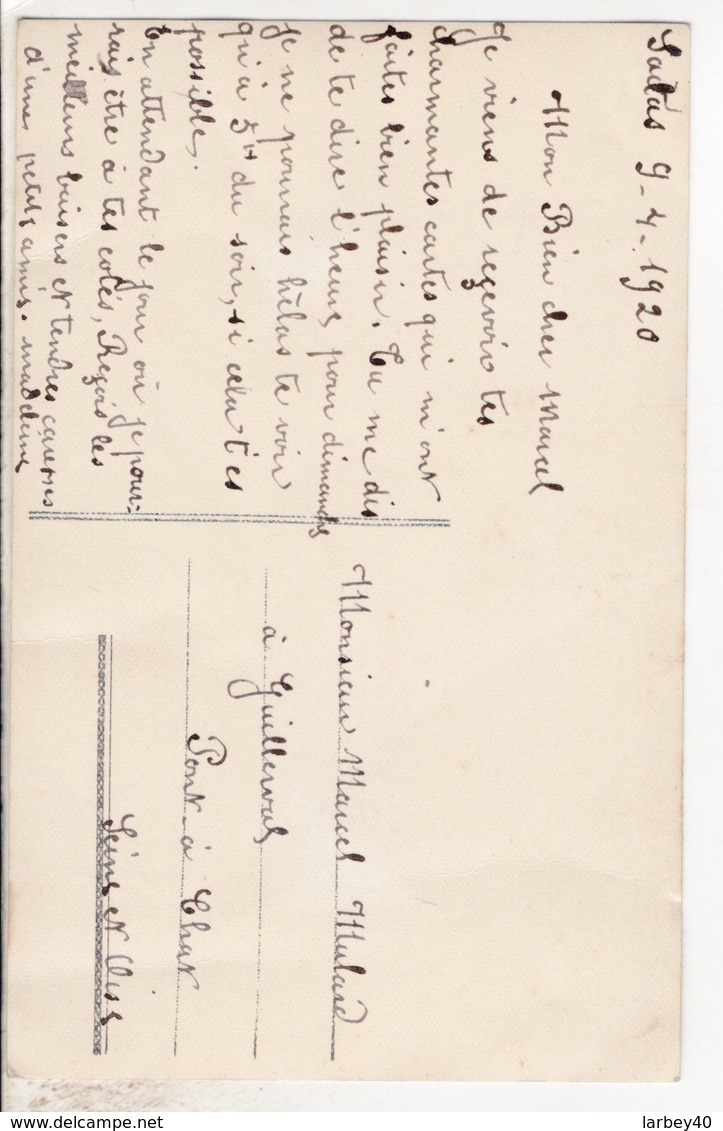 9-4-1920
Mon Bien cher Marcel
Je viens de reçevoir tes
charmantes cartes qui m'ont
faites bien plaisir. Tu me dis
de te dire l'heure, pour dimanche
je ne pourrais hélas te voir
qu'à 5h du soir, si cela t'es
possible.
En attendant le jour où je pour-
rais être à tes cotés, Reçois les
meilleurs baisers et tendres caresses
d'une petite amie. madeleine
Monsieur Marcel Mulard
à Guillerval
Pont-à Chat
Seine et Oise
larbey40